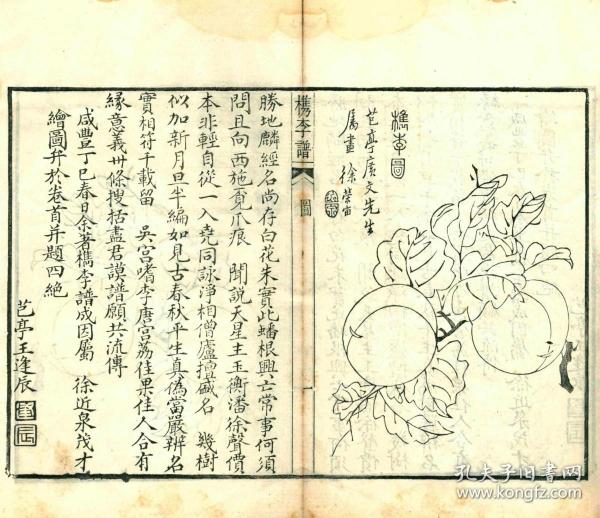 檇李圖
芑亭廣文先生
屬畫 徐榮
檇李譜 圖
勝地麟經名尚存白花朱實此蟠根興亡常事何須
問且向西施覓爪痕 聞說天星主玉衡潘徐聲價
本非輕自從一入堯同詠淨相僧廬擅盛名 幾樹
似加新月旦半編如見古春秋平生真偽當嚴辨名
實相符千載留 吳宮嗜李唐宮荔佳果佳人合有
緣意義卅條搜括盡君謨譜願共流傳
咸豐丁巳春日余著檇李譜成因屬 徐近泉茂才
繪圖弁於卷首并題四絕
芑亭王逢辰
孔夫子旧书网
www.kongfz.com